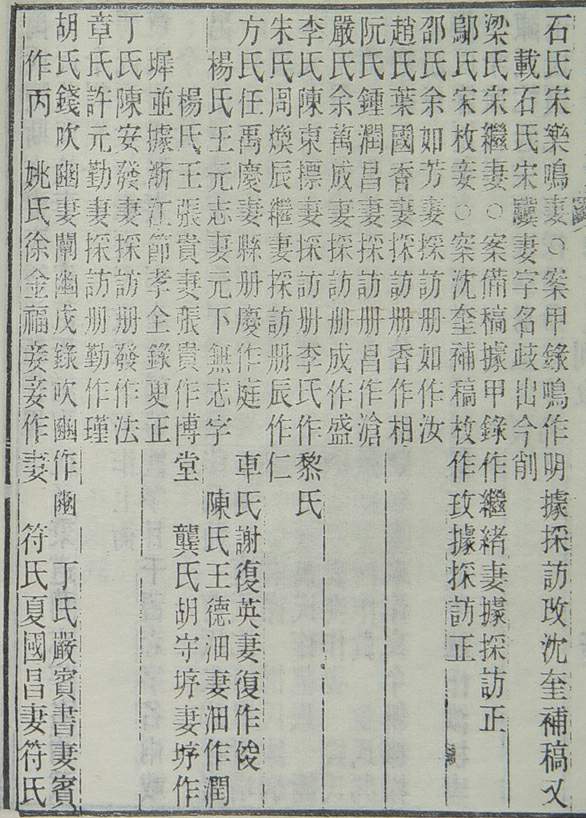 石氏宋樂鳴妻○案甲錄鳴作明據採訪改沈奎補稿又
載石氏宋驥妻字名歧出今削
梁氏宋繼妻○案備稿據甲錄作繼緒妻據採訪正
鄔氏宋枚妾○案沈奎補稿枚作玫據採訪正
邵氏余如芳妻採訪册如作汝
趙氏葉國香妻採訪册香作相
阮氏鍾潤昌妻採訪册昌作滄
嚴氏余萬成妻採訪册成作盛
李氏陳東標妻採訪册李氏作黎氏
朱氏周煥辰繼妻採訪册辰作仁
方氏任禹慶妻縣册慶作庭 車氏謝復英妻復作俊
楊氏王元志妻元下無志字 陳氏王德沺妻沺作潤
楊氏王張貴妻張貴作博堂 龔氏胡守㘧妻㘧作
墀並據浙江節孝全錄更正
丁氏陳安發妻採訪册發作法
章氏許元勤妻採訪册勤作瑾
胡氏錢吹豳妻闡幽戊錄吹豳作豳 丁氏嚴賓書妻賓
作丙 姚氏徐金福妾妾作妻 符氏夏國昌妻符氏